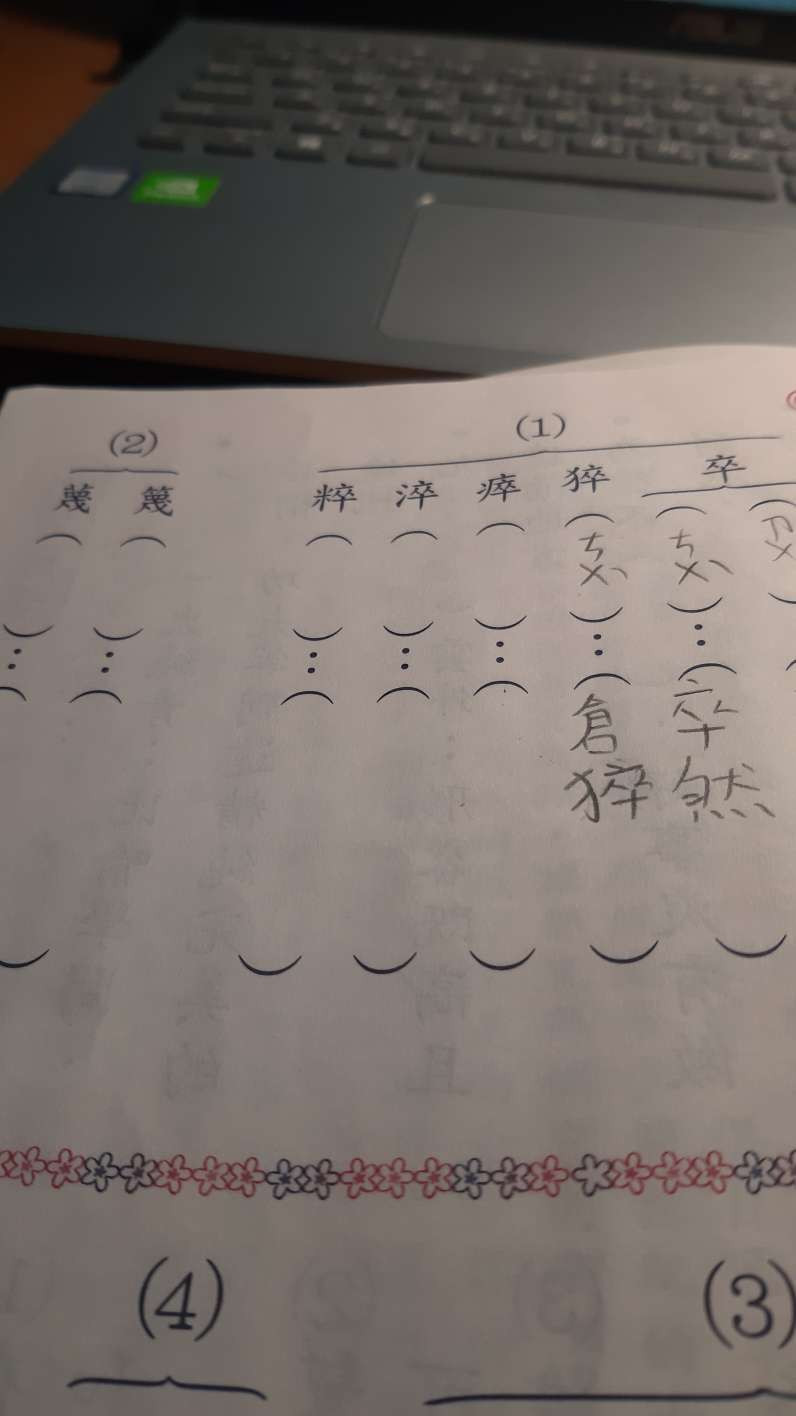 (1)
卒
(ㄗㄨ
(ㄘㄨˋ):(卒然)
猝(ㄘㄨˋ):(倉猝)
瘁( ):( )
淬( ):( )
粹( ):( )
(2)
篾( ):( )
蔑( ):( )
(3)
(4)